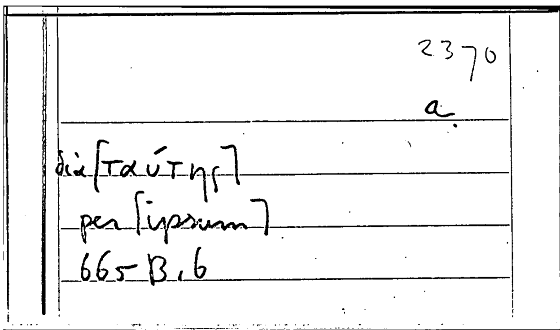 2370
a.
διὰ [ταύτης]
per [ipsum]
665 B. 6